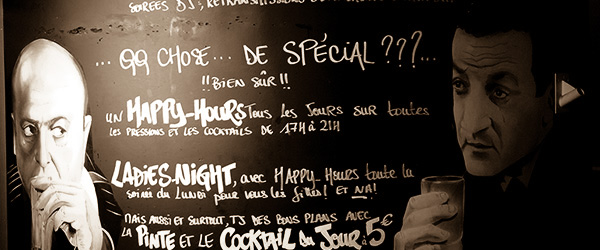 SOIRÉES DJ, RETRANSMISSIONS
... QQ CHOSE... DE SPÉCIAL ???...
!! BIEN SÛR !!
UN HAPPY-HOURS TOUS LES JOURS SUR TOUTES
LES PRESSIONS ET LES COCKTAILS DE 17H À 21H
LADIES-NIGHT, AVEC HAPPY-HOURS TOUTE LA
SOIRÉE DU LUNDI POUR VOUS LES FILLES! ET NA!
MAIS AUSSI ET SURTOUT, TJ DES BONS PLANS AVEC
LA PINTE ET LE COCKTAIL DU JOUR: 5€